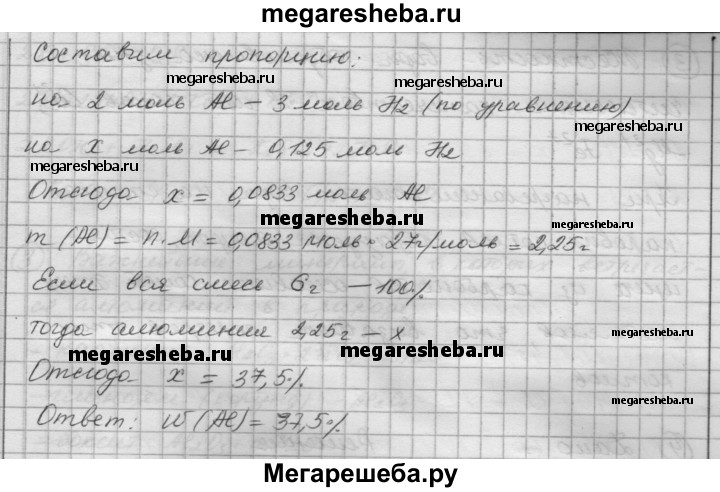 megaresheba.ru
Составим пропорцию:
megaresheba.ru megaresheba.ru
на 2 моль Al – 3 моль H2 (по уравнению)
на x моль Al – 0,125 моль H2
megaresheba.ru
Отсюда x = 0,0833 моль Al
megaresheba.ru megaresheba.ru
m (Al) = n·M = 0,0833 моль · 27г/моль = 2,25г
megaresheba.ru megaresheba.ru
Если вся смесь 6г – 100%
тогда алюминия 2,25г – x
megaresheba.ru
megaresheba.ru megaresheba.ru
Отсюда x = 37,5%
Ответ: W (Al) = 37,5%
megaresheba.ru megaresheba.ru
Мегарешеба.ру